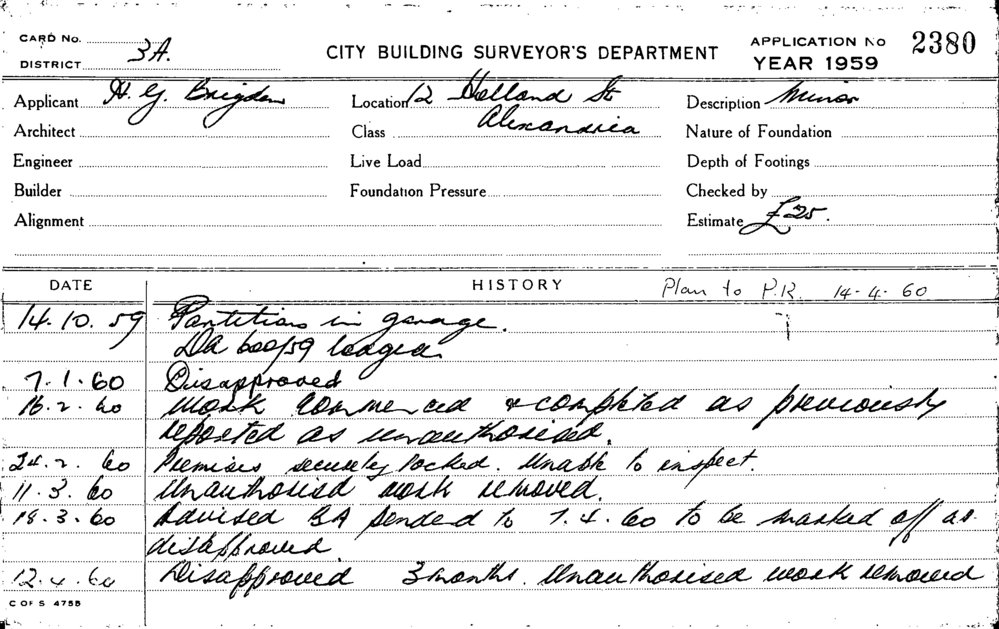 CARD No.
DISTRICT 3A.
CITY BUILDING SURVEYOR'S DEPARTMENT
APPLICATION No 2380
YEAR 1959
Applicant H. G. Brigden Location 12 Holland St Description Minor
Architect Class Alexandria Nature of Foundation
Engineer Live Load Depth of Footings
Builder Foundation Pressure Checked by
Alignment Estimate £25.
DATE HISTORY Plan to P.R. 14-4-60
14.10.59 Partitions in garage.
DA 600/59 lodged
7.1.60 Disapproved
16.2.60 Work commenced & completed as previously
reported as unauthorised.
24.2.60 Premises securely locked. Unable to inspect.
11.3.60 Unauthorised work removed.
18.3.60 Advised BA pended to 7.4.60 to be marked off as
disapproved.
12.4.60 Disapproved 3 months. Unauthorised work removed
C OF S 4755